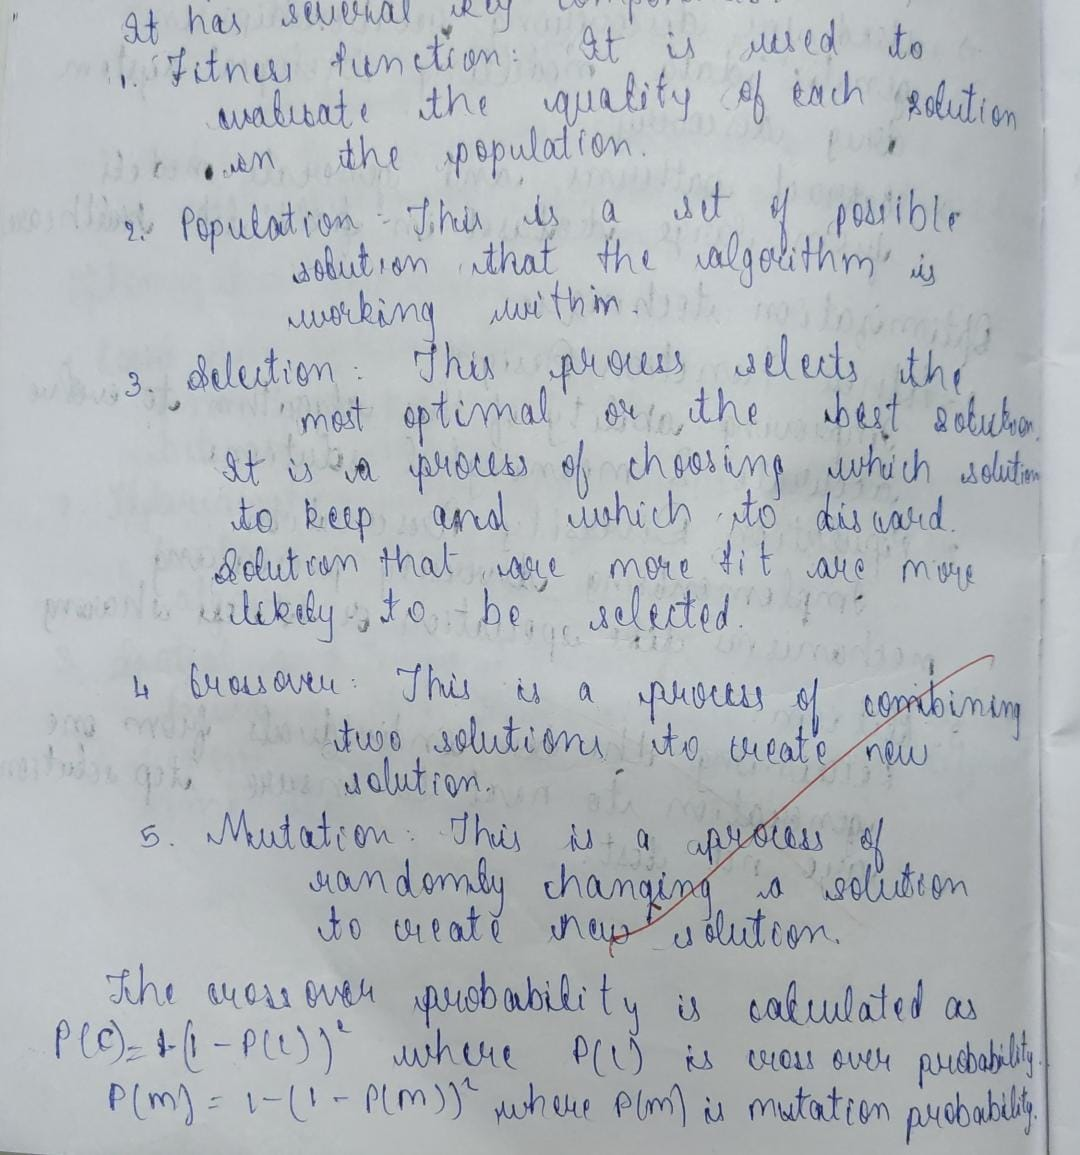 It has several key components
1. Fitness function: It is used to
evaluate the quality of each solution
in the population.
2. Population - This is a set of possible
solution that the algorithm is
working within.
3. Selection: This process selects the
most optimal or the best solution.
It is a process of choosing which solution
to keep and which to discard.
Solution that are more fit are more
likely to be selected.
4 Crossover: This is a process of combining
two solutions to create new
solution.
5. Mutation: This is a process of
randomly changing a solution
to create new solution.
The cross over probability is calculated as
P(C) = 1-(1 - P(C))² where P(C) is cross over probability.
P(m) = 1-(1 - P(m))² where P(m) is mutation probability.